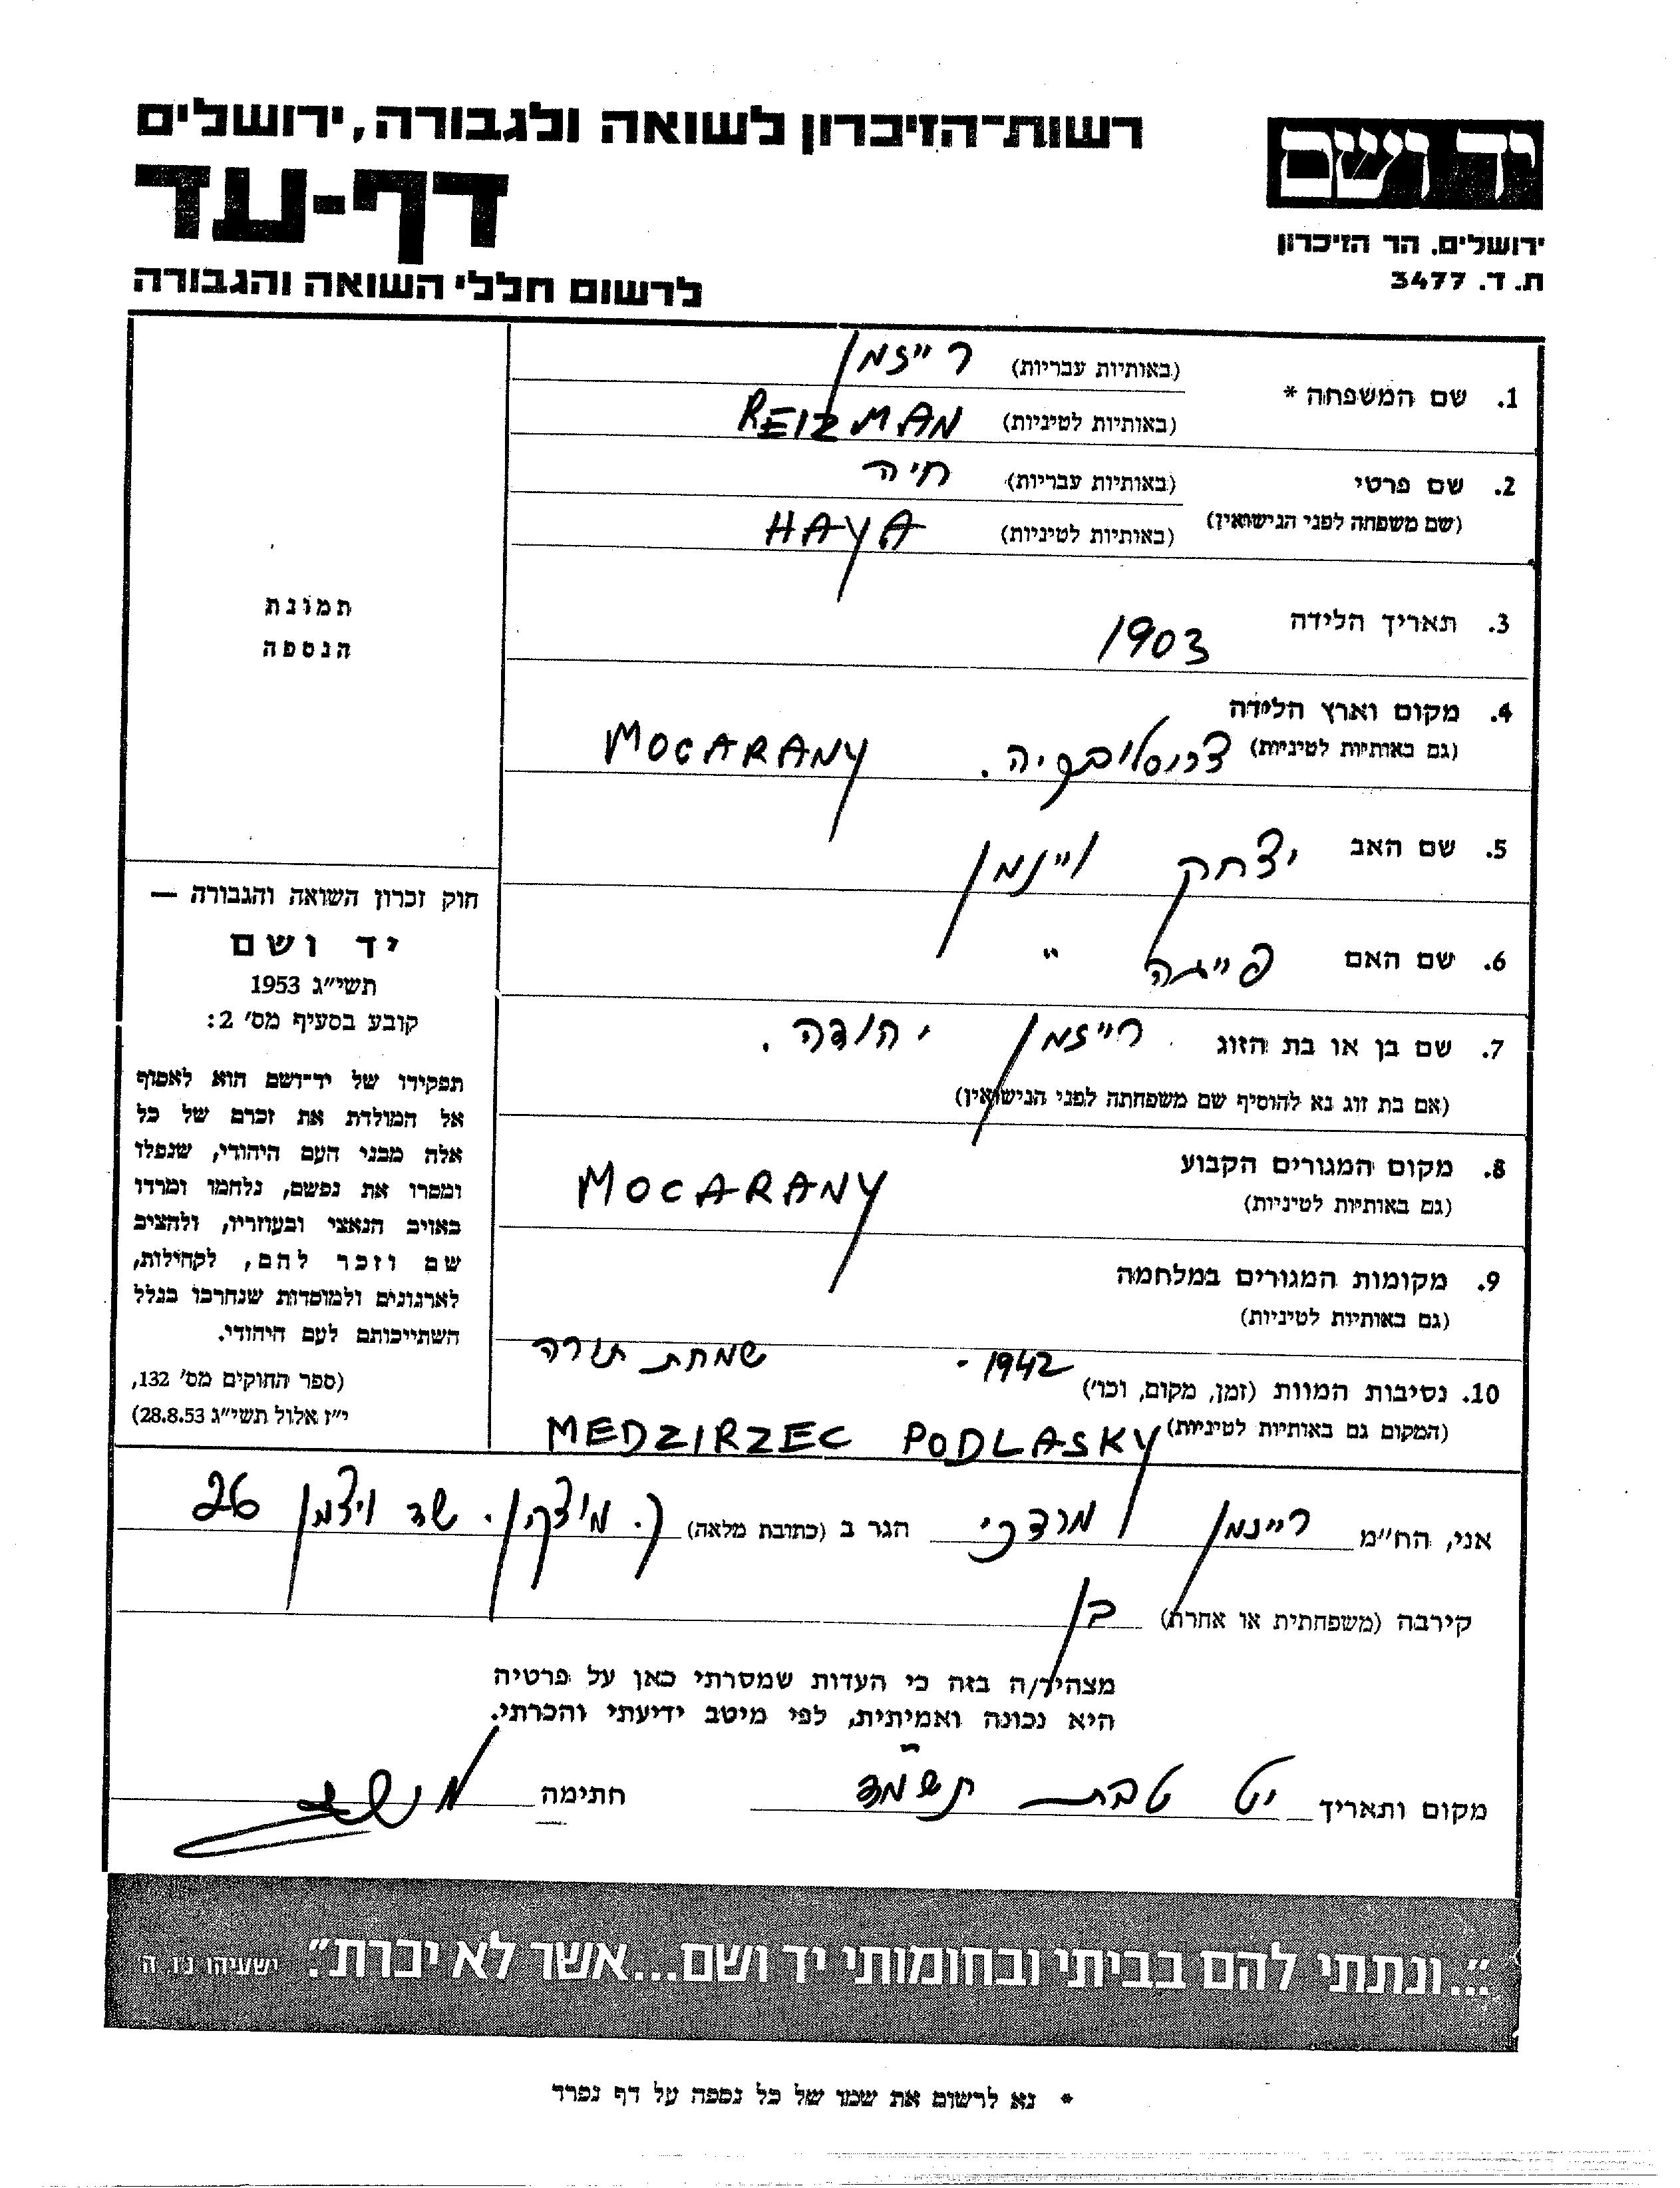 רשות־הזיכרון לשואה ולגבורה, ירושלים
יד ושם
דף-עד
ירושלים. הר הזיכרון
ת. ד. 3477
לרשום חללי השואה והגבורה
1. שם המשפחה * (באותיות עבריות) רייזמן
(באותיות לטיניות) REIZMAN
2. שם פרטי (באותיות עבריות) חיה
(שם משפחה לפני הנישואין) (באותיות לטיניות) HAYA
3. תאריך הלידה 1903
4. מקום וארץ הלידה
(גם באותיות לטיניות) MOCARANY
5. שם האב יצחק ויינמן
6. שם האם פייגה "
7. שם בן או בת הזוג רייזמן יהודה.
(אם בת זוג נא להוסיף שם משפחתה לפני הנישואין)
8. מקום המגורים הקבוע MOCARANY
(גם באותיות לטיניות)
9. מקומות המגורים במלחמה
(גם באותיות לטיניות)
10. נסיבות המוות (זמן, מקום, וכו') 1942 - שמחת תורה
(המקום גם באותיות לטיניות) MEDZIRZEC PODLASKY
תמונת
הנספה
חוק זכרון השואה והגבורה —
יד ושם
תשי"ג 1953
קובע בסעיף מס' 2:
תפקידו של יד־ושם הוא לאסוף
אל המולדת את זכרם של כל
אלה מבני העם היהודי, שנפלו
ומסרו את נפשם, נלחמו ומרדו
באויב הנאצי ובעוזריו, ולהציב
שם וזכר להם, לקהילות,
לארגונים ולמוסדות שנחרבו בגלל
השתייכותם לעם היהודי.
(ספר החוקים מס' 132,
י"ז אלול תשי"ג 28.8.53)
אני, הח"מ רייזמן מרדכי הגר ב (כתובת מלאה) ק. מוצקין. שד ויצמן 26
קירבה (משפחתית או אחרת) בן
מצהיר/ה בזה כי העדות שמסרתי כאן על פרטיה
היא נכונה ואמיתית, לפי מיטב ידיעתי והכרתי.
מקום ותאריך יט טבת תשמד חתימה
"...ונתתי להם בביתי ובחומותי יד ושם...אשר לא יכרת". ישעיהו נ"ו, ה
* נא לרשום את שמו של כל נספה על דף נפרד